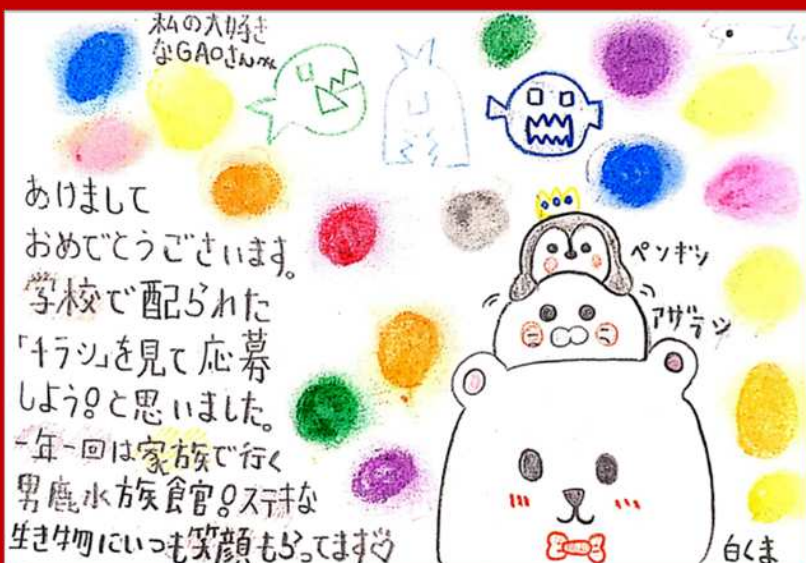 私の大好き
なGAOさんへ
あけまして
おめでとうございます。
学校で配られた
「チラシ」を見て応募
しよう!と思いました。
一年一回は家族で行く
男鹿水族館!ステキな
生き物にいつも笑顔もらってます♡
ペンギン
アザラシ
白くま